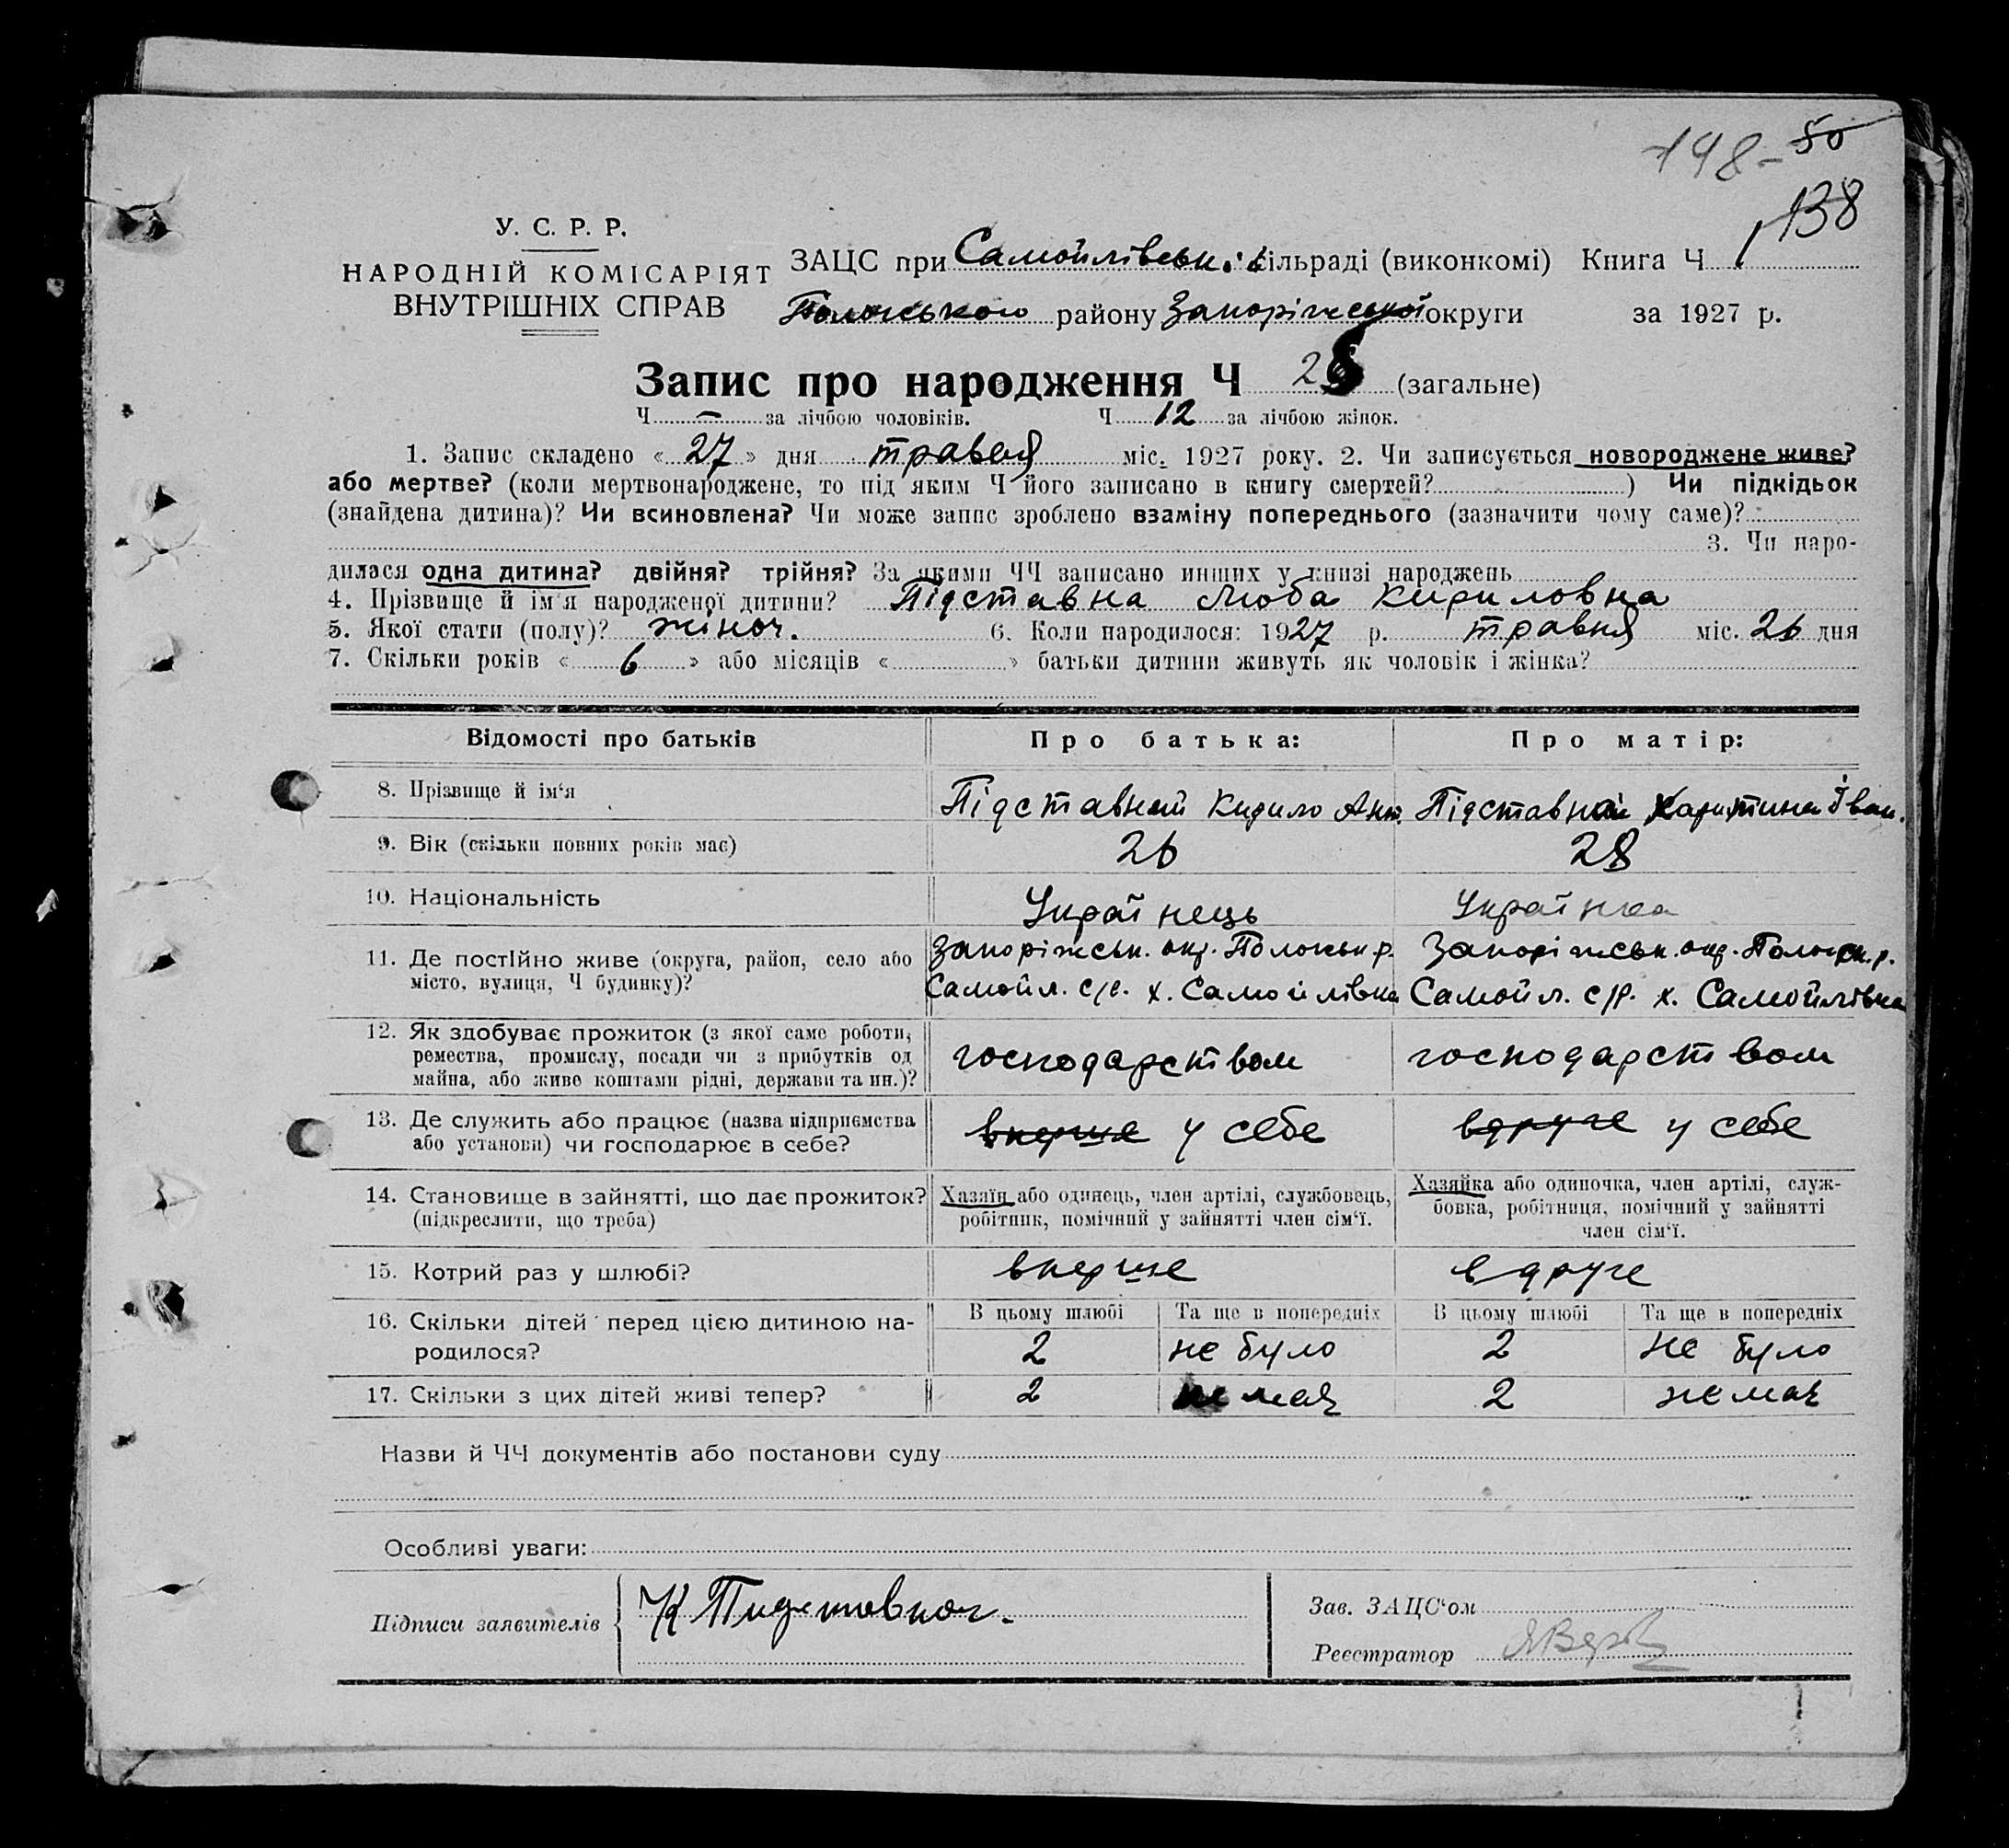 198- 50
138
У. С. Р. Р.
НАРОДНІЙ КОМІСАРІЯТ
ВНУТРІШНІХ СПРАВ
ЗАЦС при Самойлівськ. сільраді (виконкомі) Книга Ч 1
Пологського району Запоріжської округи за 1927 р.
Запис про народження Ч (загальне)
Ч — за лічбою чоловіків. Ч 12 за лічбою жінок.
1. Запис складено « 27 » дня травня міс. 1927 року. 2. Чи записується новороджене живе?
або мертве? (коли мертвонароджене, то під яким Ч його записано в книгу смертей? ) Чи підкідьок
(знайдена дитина)? Чи всиновлена? Чи може запис зроблено взаміну попереднього (зазначити чому саме)?
3. Чи наро-
дилася одна дитина? двійня? трійня? За якими ЧЧ записано инших у книзі народжень
4. Прізвище й ім'я народженої дитини? Підставна Люба Кириловна
5. Якої стати (полу)? жіноч. 6. Коли народилося: 1927 р. травня міс. 26 дня
7. Скільки років « 6 » або місяців « » батьки дитини живуть як чоловік і жінка?
Відомості про батьків Про батька: Про матір:
8. Прізвище й ім'я Підставний Кирило Ант. Підставна Харитина Іван.
9. Вік (скільки повних років має) 26 28
10. Національність Українець Українка
11. Де постійно живе (округа, район, село або Запоріжськ. окр. Пологськ р. Запоріжськ. окр. Пологськ. р.
місто, вулиця, Ч будинку)? Самойл. с/р. х. Самойлівка Самойл. с/р. х. Самойлівка
12. Як здобуває прожиток (з якої саме роботи,
ремества, промислу, посади чи з прибутків од господарством господарством
майна, або живе коштами рідні, держави та ин.)?
13. Де служить або працює (назва підприємства вперше у себе вдруге у себе
або установи) чи господарює в себе?
14. Становище в зайнятті, що дає прожиток? Хазяїн або одинець, член артілі, службовець, Хазяйка або одиночка, член артілі, служ-
(підкреслити, що треба) робітник, помічний у зайнятті член сім'ї. бовка, робітниця, помічний у зайнятті
член сім'ї.
15. Котрий раз у шлюбі? вперше вдруге
16. Скільки дітей перед цією дитиною на- В цьому шлюбі Та ще в попередніх В цьому шлюбі Та ще в попередніх
родилося? 2 не було 2 не було
17. Скільки з цих дітей живі тепер? 2 немає 2 немає
Назви й ЧЧ документів або постанови суду
Особливі уваги:
Підписи заявителів К Пидставной. Зав. ЗАЦС'ом
Реєстратор